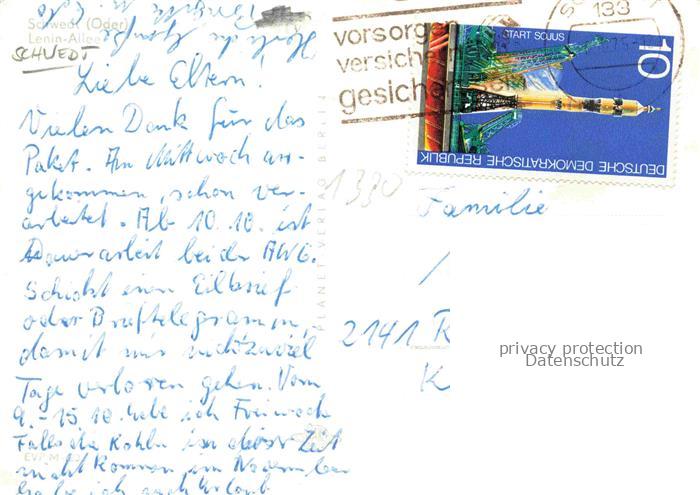 Schwedt (Oder)
Lenin-Allee
SCHWEDT
Liebe Eltern!
Vielen Dank für das
Paket. Am Mittwoch an-
gekommen, schon ver-
arbeitet. Ab 10.10. ist
Dauerarbeit bei der AWG.
Schickt einen Eilbrief
oder Brieftelegramm,
damit mir nicht zuviel
Tage verloren gehen. Vom
9.-15.10. habe ich Freiwoche
Falls die Kohlen in dieser Zeit
nicht kommen, im November
habe ich noch Urlaub
PLANET VERLAG BERLIN
vorsorgen
versiche
gesiche
133
START SOJUS
10
DEUTSCHE DEMOKRATISCHE REPUBLIK
1330
Familie
2141 R
K
privacy protection
Datenschutz